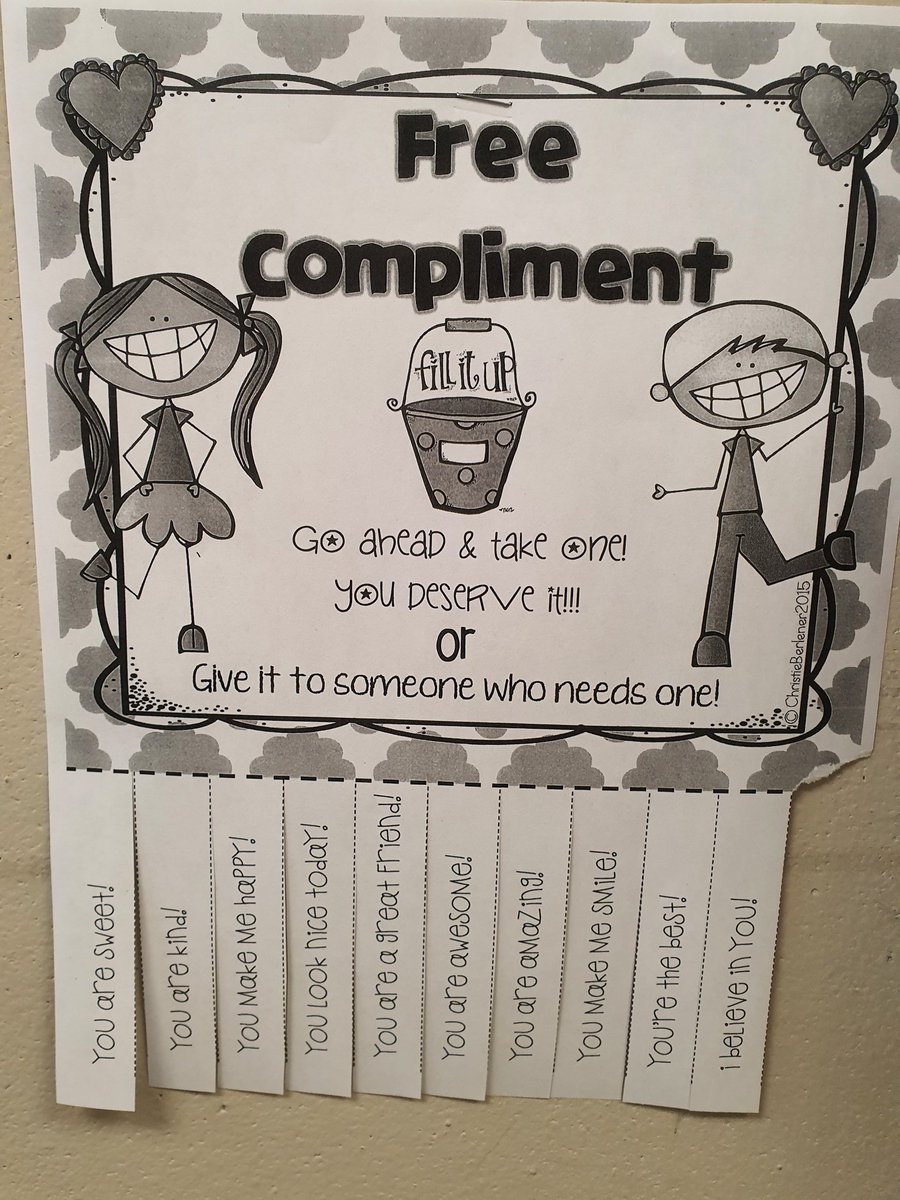 Free
Compliment
fill it up
Go ahead & take one!
You deserve it!!!
or
Give it to someone who needs one!
©ChristieBerlener2015
You are sweet!
You are kind!
You make me happy!
You look nice today!
You are a great friend!
You are awesome!
You are amazing!
You make me smile!
You're the best!
I believe in you!